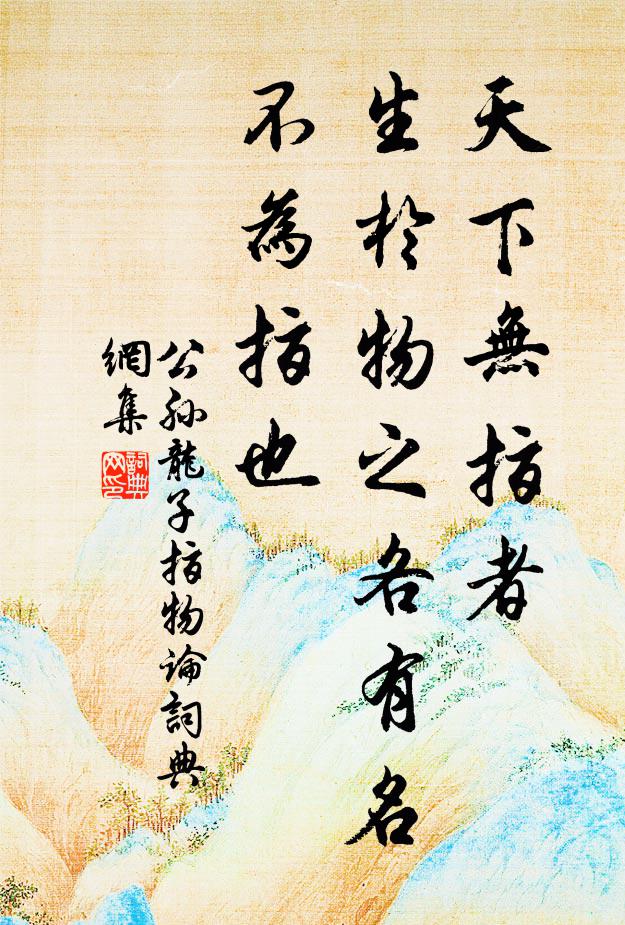 天下無指者
生於物之各有名
不為指也
公孫龍子指物論詞典
網集
詞典
网印